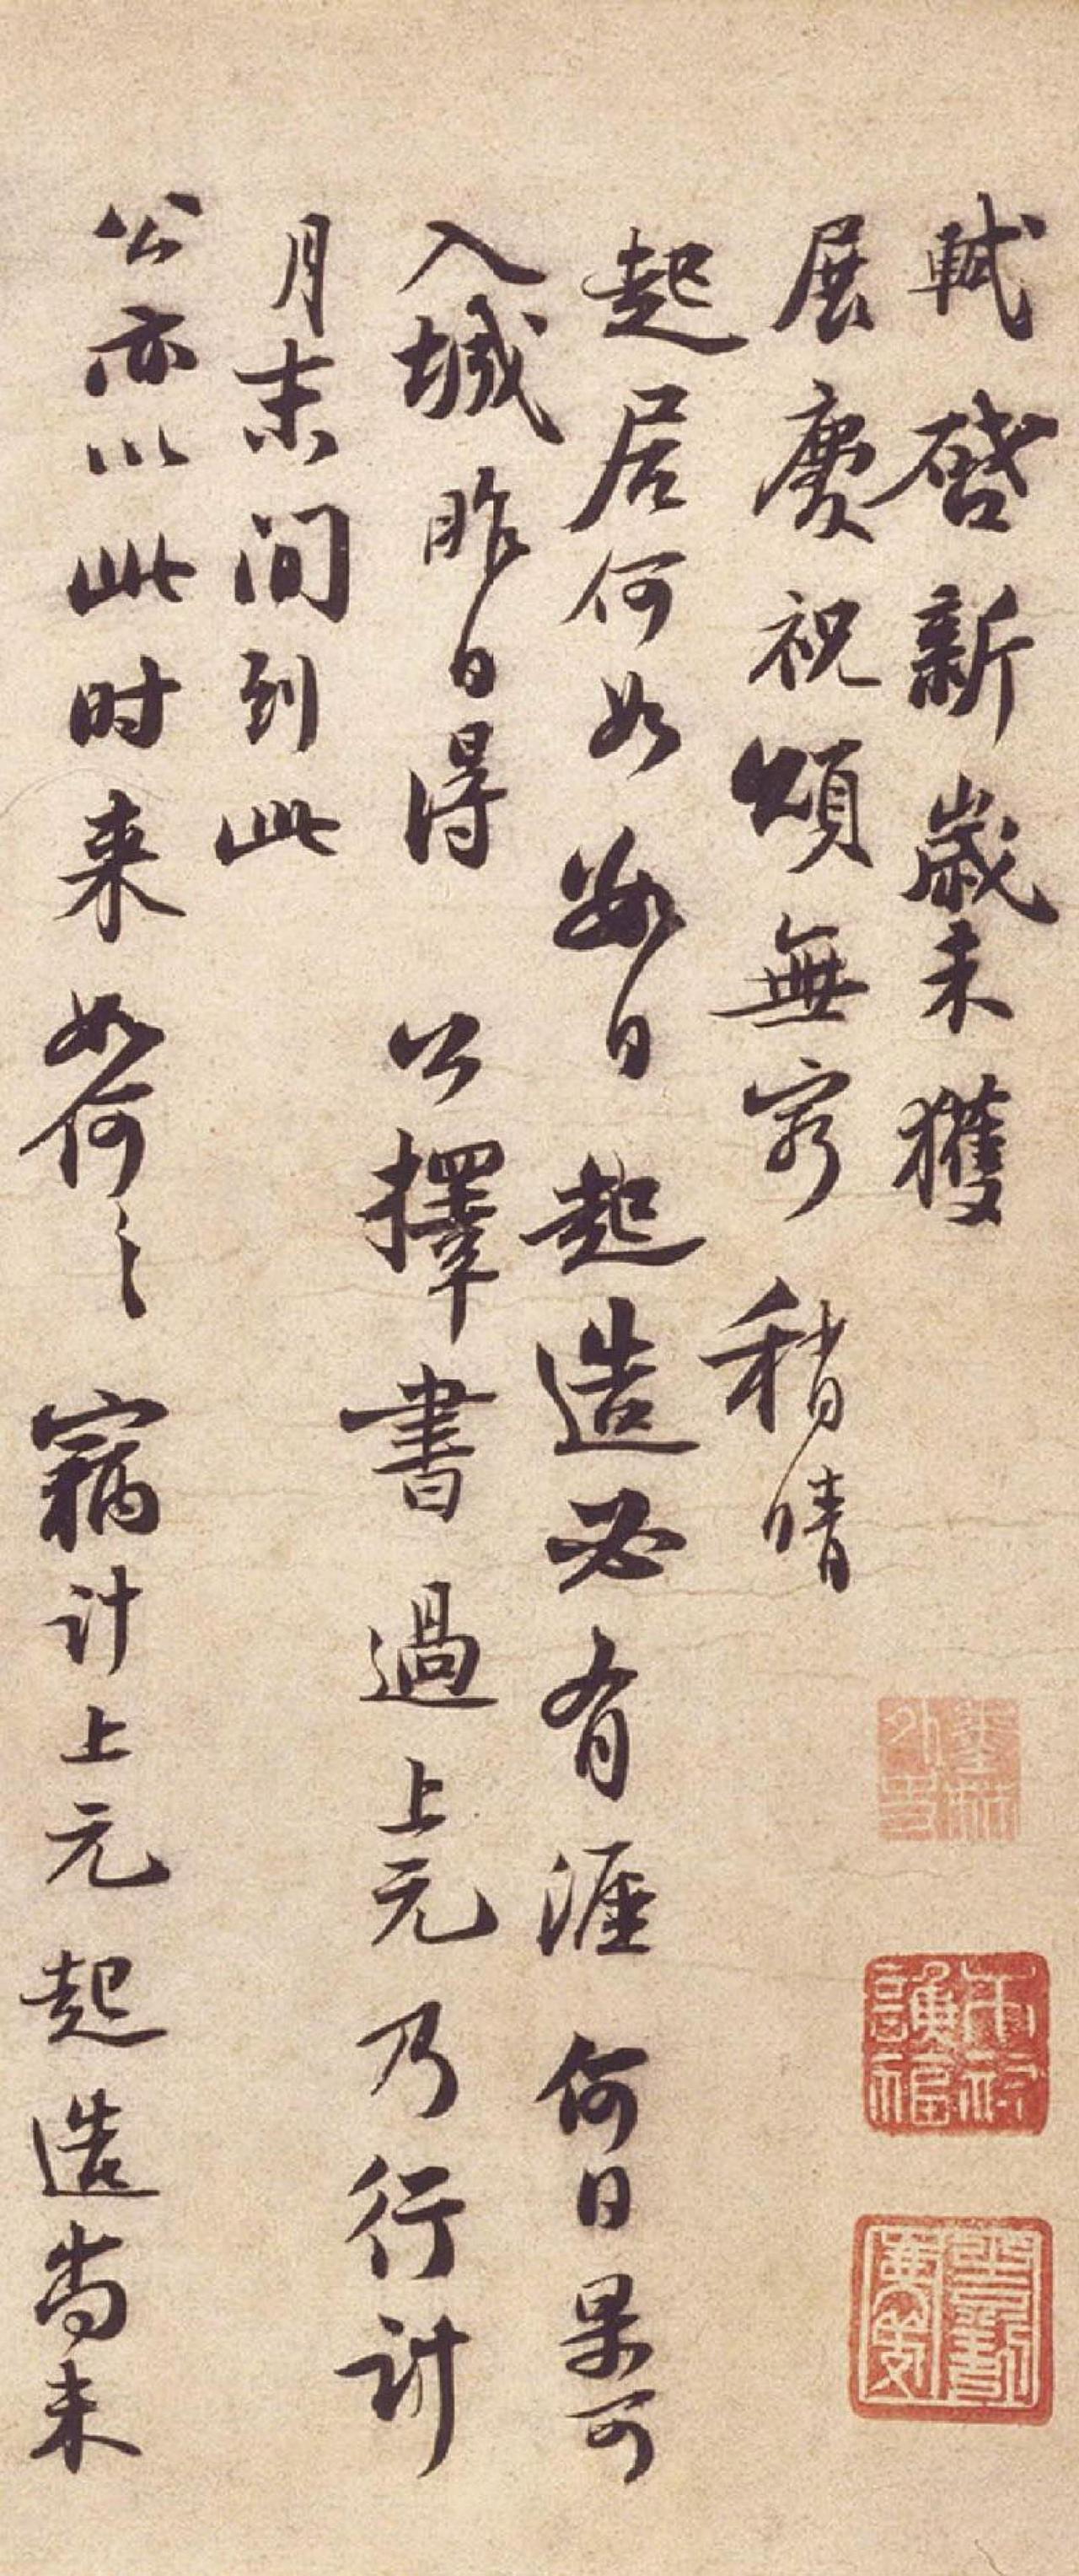 軾啓新歲未獲
展慶祝頌無窮稍晴
起居何如數日起造必有涯何日果可
入城昨日得公擇書過上元乃行計
月末間到此
公亦以此时来如何〻竊計上元起造尚未